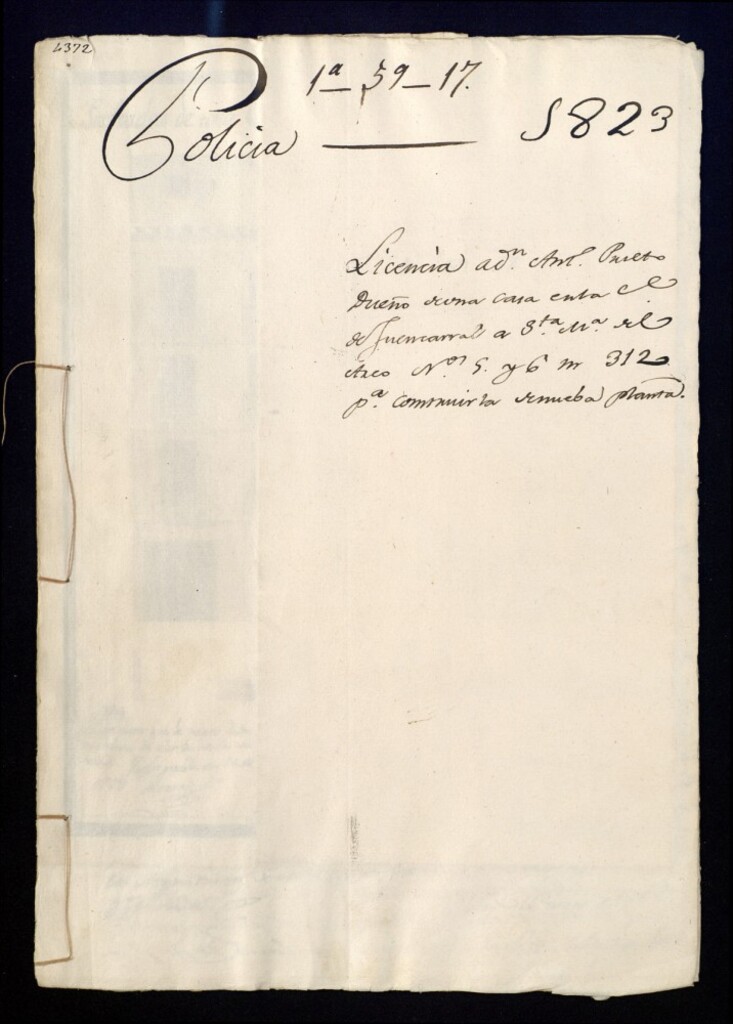 4372
1ª-59-17.
Policia — 1823
Licencia a dn. Antº. Prieto
Dueño de una casa en la C.e
de Fuencarral a Sta. Mª. del
Arco Nos. 5. y 6 mª 312
pª. construirla de nueba planta.